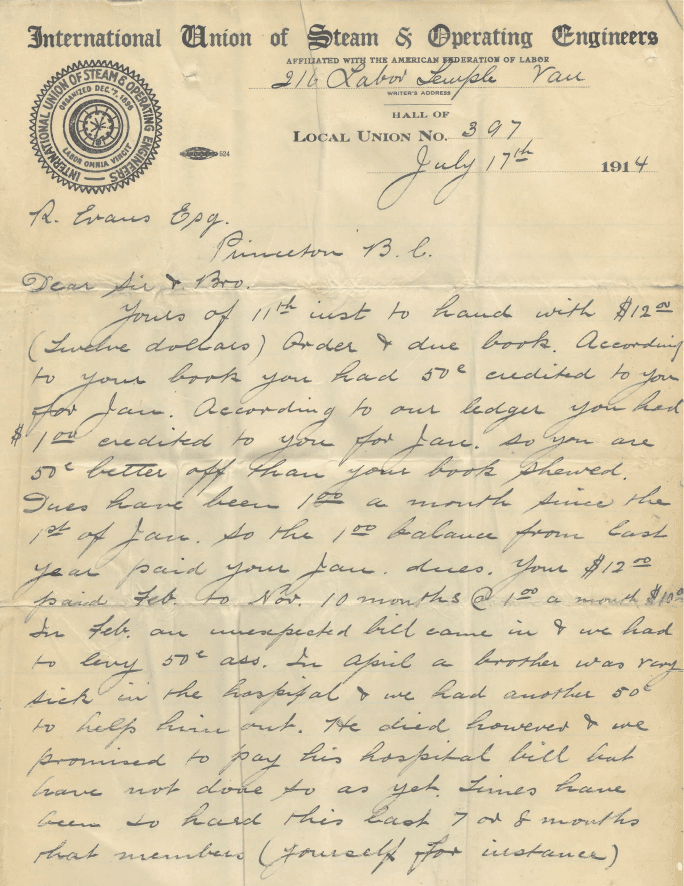 International Union of Steam & Operating Engineers
AFFILIATED WITH THE AMERICAN FEDERATION OF LABOR
216 Labor Temple Van
WRITER'S ADDRESS
HALL OF
LOCAL UNION NO. 397
July 17th 1914
INTERNATIONAL UNION OF STEAM & OPERATING ENGINEERS
ORGANIZED DEC. 7, 1896
LABOR OMNIA VINCIT
524
R. Evans Esq.
Princeton B.C.
Dear Sir & Bro.
Yours of 11th inst to hand with $12.00
(Twelve dollars) Order & due book. According
to your book you had 50c credited to you
for Jan. According to our ledger you had
$1.00 credited to you for Jan. so you are
50c better off than your book shewed.
Dues have been 1.00 a month since the
1st of Jan. so the 1.00 balance from last
year paid your Jan. dues. Your $12.00
paid Feb. to Nov. 10 months @ 1.00 a month $10.00
In Feb. an unexpected bill came in & we had
to levy 50c ass. In April a brother was very
sick in the hospital & we had another 50c
to help him out. He died however & we
promised to pay his hospital bill but
have not done so as yet. Times have
been so hard this last 7 or 8 months
that members (yourself for instance)